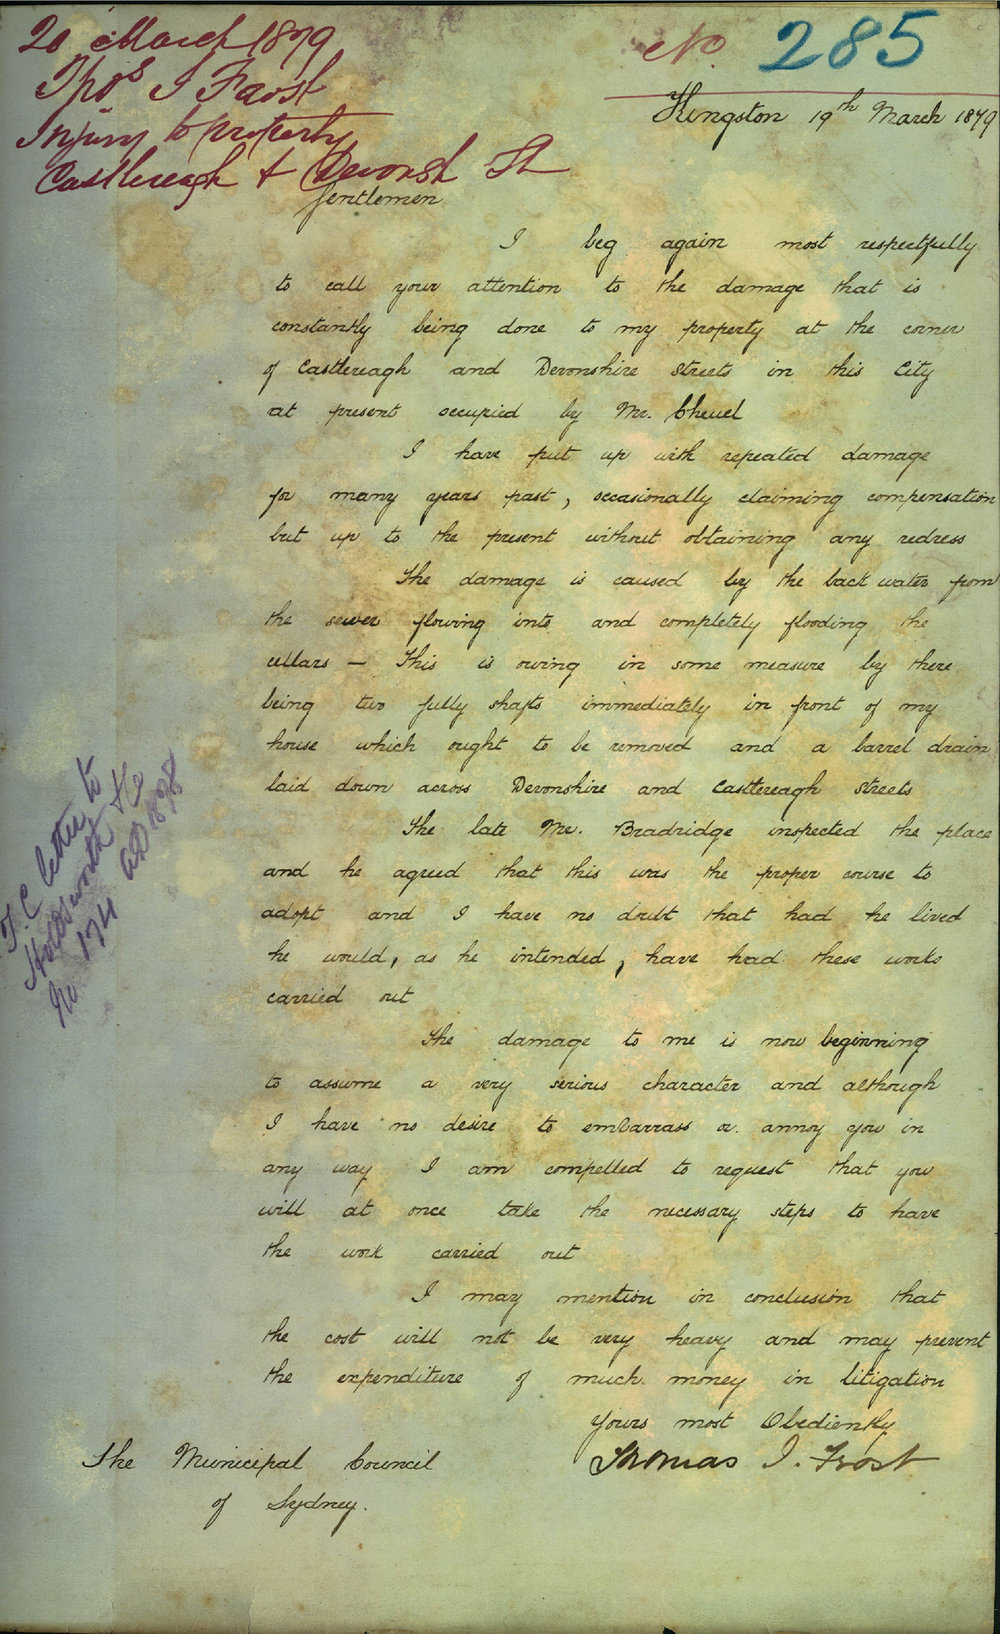 20 March 1879
Thos I Frost
Injury to property
Castlereagh & Devonsh St
No. 285
Kingston 19th March 1879
Gentlemen
I beg again most respectfully
to call your attention to the damage that is
constantly being done to my property at the corner
of Castlereagh and Devonshire Streets in this City
at present occupied by Mr. Cheuel
I have put up with repeated damage
for many years past, occasionally claiming compensation
but up to the present without obtaining any redress
The damage is caused by the back water from
the sewer flowing into and completely flooding the
cellars — This is owing in some measure by there
being two fully shafts immediately in front of my
house which ought to be removed and a barrel drain
laid down across Devonshire and Castlereagh streets
The late Mr. Bradridge inspected the place
and he agreed that this was the proper course to
adopt and I have no doubt that had he lived
he would, as he intended, have had these works
carried out
The damage to me is now beginning
to assume a very serious character and although
I have no desire to embarrass or annoy you in
any way I am compelled to request that you
will at once take the necessary steps to have
the work carried out
I may mention in conclusion that
the cost will not be very heavy and may prevent
the expenditure of much money in litigation
Yours most Obediently
Thomas I. Frost
The Municipal Council
of Sydney.
T.C letter to
Holdsworth &c
No 1711 1878